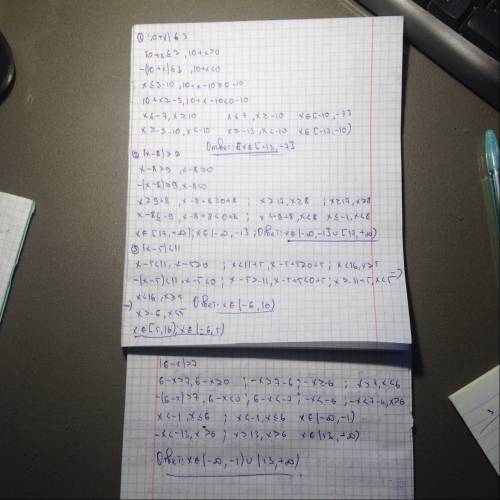 ① |10+x|≤3
10+x≤3, 10+x≥0
-(10+x)≤3, 10+x<0
x≤3-10, 10+x-10≥0-10
10+x≥-3, 10+x-10<0-10
x≤-7, x≥10 x≤7, x≥-10 x∈[-10,-7]
x≥-3-10, x<-10 x≥-13, x<-10 x∈[-13,-10)
Ответ: x∈[-13,-7]
② |x-8|≥9
x-8≥9, x-8≥0
-(x-8)≥9, x-8<0
x≥9+8, x-8+8≥0+8 ; x≥17, x≥8 ; x≥17, x≥8
x-8≤-9, x-8+8<0+8 ; x≤-9+8, x<8 x≤-1, x<8
x∈[17,+∞); x∈(-∞,-1] ; Ответ: x∈(-∞,-1]∪[17,+∞)
③ |x-5|<11
x-5<11, x-5≥0 ; x<11+5, x-5+5≥0+5 ; x<16, x≥5
-(x-5)<11, x-5<0 ; x-5>-11, x-5+5<0+5 ; x>-11+5, x<5 →
→ x<16, x≥5 Ответ: x∈(-6,10)
x>-6, x<5
x∈[5,16); x∈(-6,5)
|6-x|>7
6-x>7, 6-x≥0 ; -x>7-6 ; -x≥-6 ; x≤6
-(6-x)>7, 6-x<0 ; 6-x<-7 ; -x<-6 ; -x<-7-6, x>6
x<-1, x≤6 ; x<-1, x≤6 x∈(-∞,-1)
-x<-13, x>6 ; x>13, x>6 x∈(13,+∞)
Ответ: x∈(-∞,-1)∪(13,+∞)